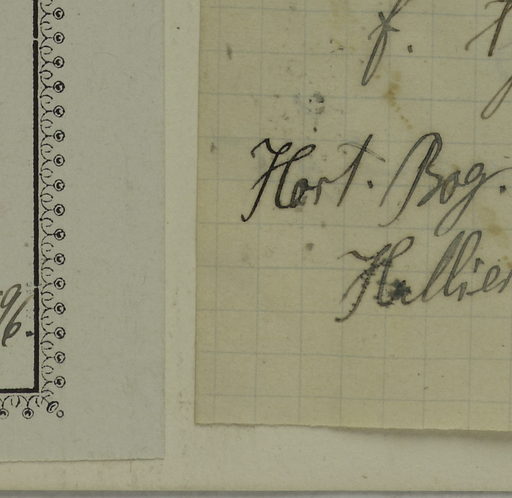 f.
Hort. Bog.
Hallier
96.